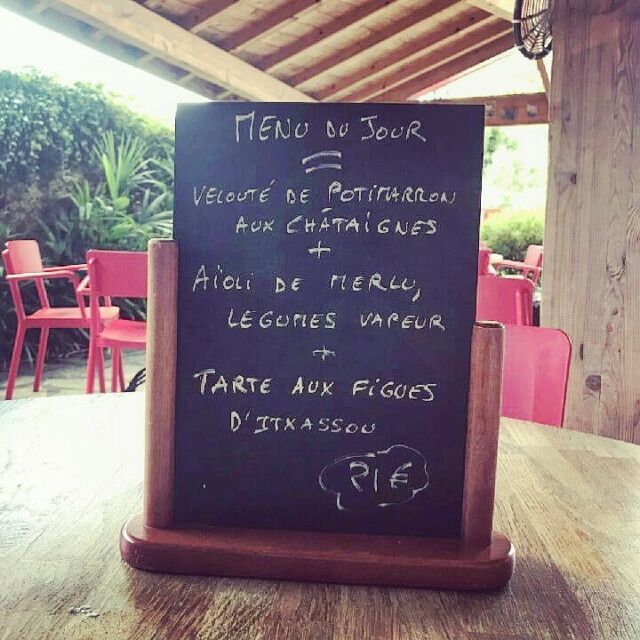 MENU DU JOUR
VELOUTÉ DE POTIMARRON
AUX CHÂTAIGNES
+
AÏOLI DE MERLU,
LEGUMES VAPEUR
+
TARTE AUX FIGUES
D'ITXASSOU
21€